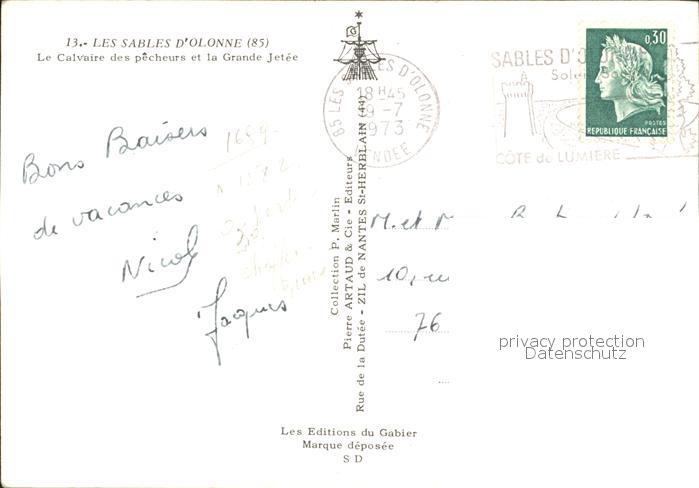 13.- LES SABLES D'OLONNE (85)
Le Calvaire des pêcheurs et la Grande Jetée
85 LES SABLES D'OLONNE
18 H 45
9-7
1973
VENDEE
SABLES D'OLONNE
CÔTE de LUMIÈRE
0,30
POSTES
REPUBLIQUE FRANÇAISE
Bons Baisers
de vacances
Nicole
Jacques
1669
Collection P. Marlin
Pierre ARTAUD & Cie - Editeurs
Rue de la Dutée - ZIL de NANTES St-HERBLAIN (44)
M. et M
10, ru
76
privacy protection
Datenschutz
Les Editions du Gabier
Marque déposée
S D